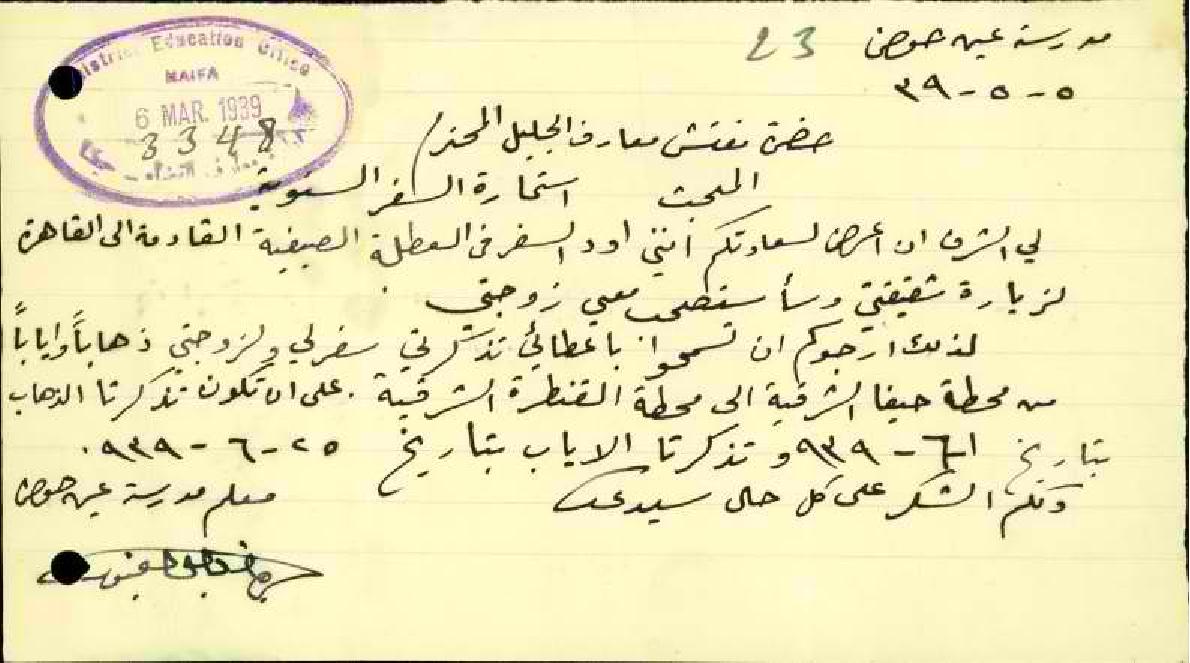 مدرسة عين حوض 23
٥-٥-٣٩
District Education Office
HAIFA
6 MAR. 1939
3348
حضرة مفتش معارف الجليل المحترم
المبحث استمارة السفر السنوية
لي الشرف ان اعرض لسعادتكم أنني اود السفر في العطلة الصيفية القادمة الى القاهرة
لزيارة شقيقتي وسأستصحب معي زوجتي
لذلك ارجوكم ان تسمحوا باعطائي تذكرتي سفر لي ولزوجتي ذهاباً واياباً
من محطة حيفا الشرقية الى محطة القنطرة الشرقية . على ان تكون تذكرتا الذهاب
بتاريخ ١-٦-٩٣٩ و تذكرتا الاياب بتاريخ ٢٥-٦-٩٣٩ .
ولكم الشكر على كل حال سيدي
معلم مدرسة عين حوض